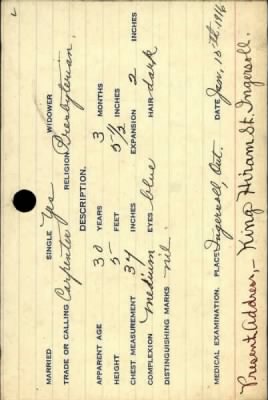 MARRIED SINGLE Yes WIDOWER
TRADE OR CALLING Carpenter RELIGION Presbyterian.
DESCRIPTION.
APPARENT AGE 30 YEARS 3 MONTHS
HEIGHT 5 FEET 5½ INCHES
CHEST MEASUREMENT 34 INCHES EXPANSION 2 INCHES
COMPLEXION Medium EYES blue HAIR dark
DISTINGUISHING MARKS nil.
MEDICAL EXAMINATION. PLACE Ingersoll, Ont. DATE Jan, 15th 1916
Present Address, - King Hiram St. Ingersoll.